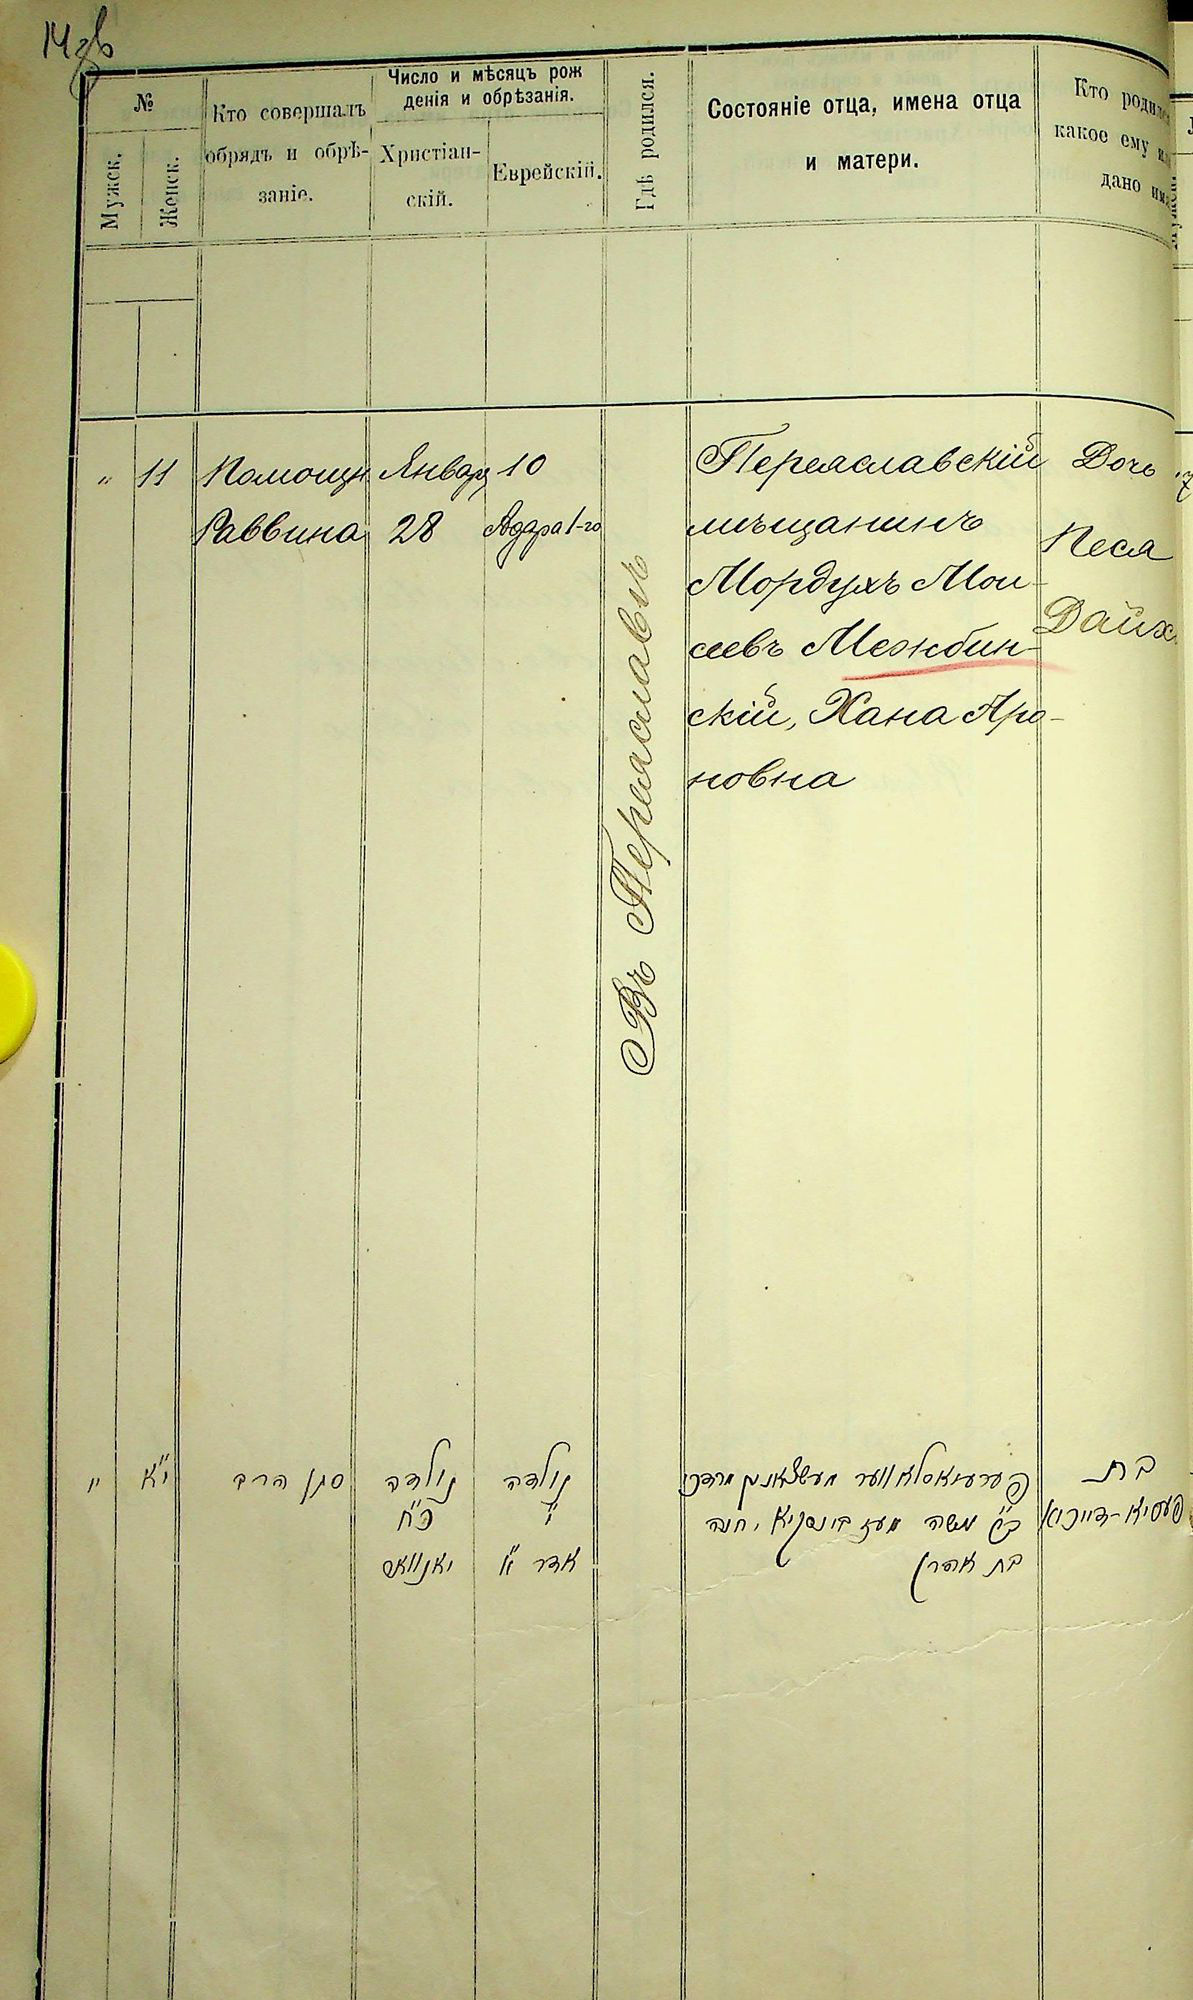 14 об
№
Мужск.
Женск.
Кто совершалъ
обрядъ и обрѣ-
заніе.
Число и мѣсяцъ рож
денія и обрѣзанія.
Христіан-
скій.
Еврейскій.
Гдѣ родился.
Состояніе отца, имена отца
и матери.
Кто
какое ему
дано
„
11
Помощн
Раввина
Январ
28
10
Адара 1-го
Въ Переяславѣ
Переяславскій
мѣщанинъ
Мордухъ Мои-
сеевъ Межбин-
скій, Хана Аро-
новна
Дочь
Песя
Дайх
"
י"א
סגן הרב
נולדה
כ"ח
יאנוואר
נולדה
י"
אדר א'
פערעיאסלאווער מעשצאנין מרדכי
ב"ר משה מעזבינסקיא, חנה
בת אהרן
בת
פעסיא-דייכא